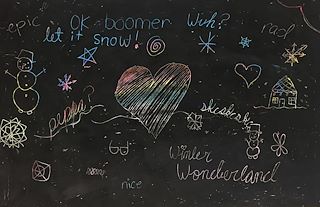 epic OK boomer Wuh? rad
let it snow!
peppa?
skeskeske
Winter
Wonderland
nice